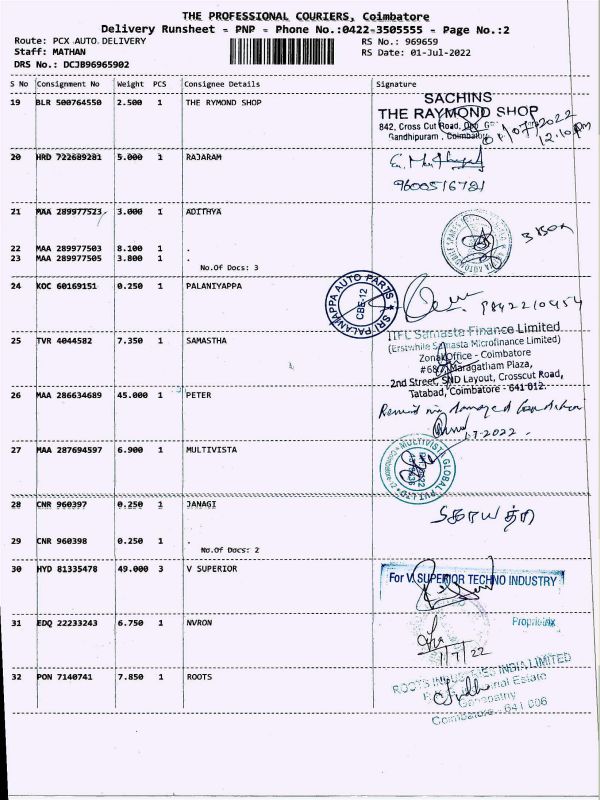 THE PROFESSIONAL COURIERS, Coimbatore
Delivery Runsheet - PNP - Phone No.:0422-3505555 - Page No.:2
Route: PCX AUTO DELIVERY
RS No.: 969659
Staff: MATHAN
RS Date: 01-Jul-2022
DRS No.: DCJB96965902
S No Consignment No Weight PCS Consignee Details Signature
19 BLR 500764550 2.500 1 THE RYMOND SHOP
SACHINS
THE RAYMOND SHOP
842, Cross Cut Road,
Gandhipuram, Coimbatore
01/07/2022
12.10pm
20 HRD 722689281 5.000 1 RAJARAM
9600516781
21 MAA 289977523 3.000 1 ADITHYA
3 BOX
22 MAA 289977503 8.100 1 .
23 MAA 289977505 3.800 1 .
No.Of Docs: 3
24 KOC 60169151 0.250 1 PALANIYAPPA
SRI PALANIAPPA AUTO PARTS
CBE-12
9842210454
25 TVR 4044582 7.350 1 SAMASTHA
IIFL Samasta Finance Limited
(Erstwhile Samasta Microfinance Limited)
Zonal Office - Coimbatore
Maragatham Plaza,
2nd Street, SND Layout, Crosscut Road,
Tatabad, Coimbatore - 641 012.
26 MAA 286634689 45.000 1 PETER
damaged Condition
1-7-2022
27 MAA 287694597 6.900 1 MULTIVISTA
MULTIVISTA GLOBAL PVT LTD
28 CNR 960397 0.250 1 JANAGI
29 CNR 960398 0.250 1 .
No.Of Docs: 2
30 HYD 81335478 49.000 3 V SUPERIOR
For V. SUPERIOR TECHNO INDUSTRY
31 EDQ 22233243 6.750 1 NVRON
1/7/22
32 PON 7140741 7.850 1 ROOTS
ROOTS INDUSTRIES INDIA LIMITED
Estate
Ganapathy
Coimbatore - 641 006